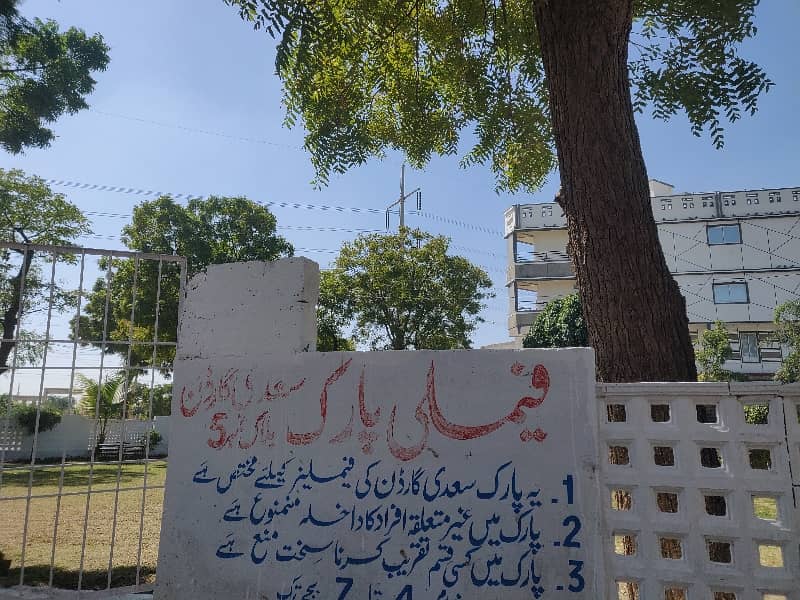 فیملی پارک سعدی گارڈن
بلاک نمبر 5
1۔ یہ پارک سعدی گارڈن کی فیملیز کیلئے مختص ہے
2۔ پارک میں غیر متعلقہ افراد کا داخلہ ممنوع ہے
3۔ پارک میں کسی قسم تقریب کرنا سخت منع ہے
4 تا 7 بجے تک